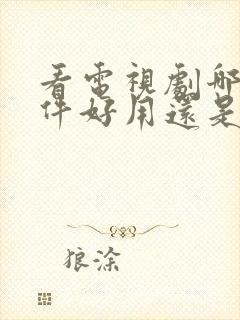 看電視劇哪
件好用還是
狼涂